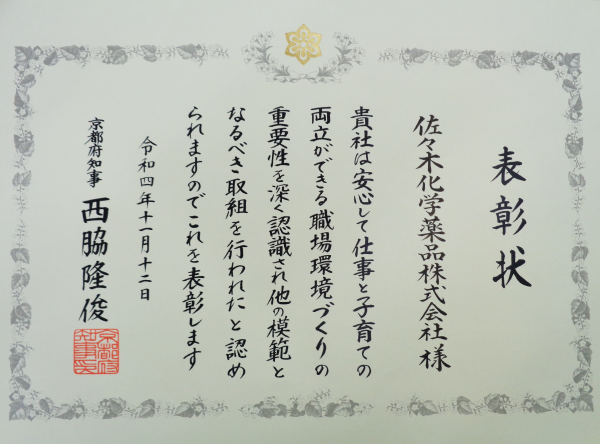 表彰状
佐々木化学薬品株式会社様
貴社は安心して仕事と子育ての
両立ができる職場環境づくりの
重要性を深く認識され他の模範と
なるべき取組を行われたと認め
られますのでこれを表彰します
令和四年十一月十二日
京都府知事 西脇隆俊
京都府知事印